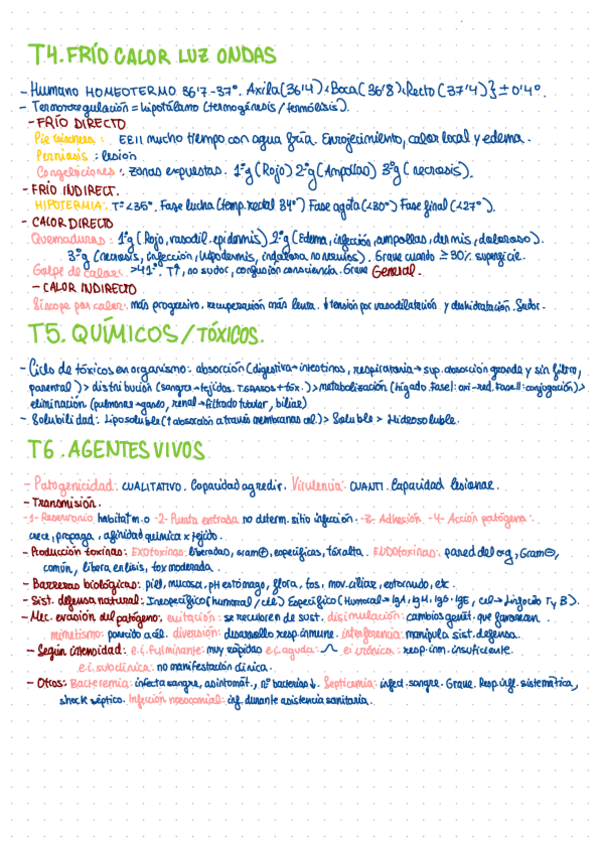 T4. FRÍO CALOR LUZ ONDAS
- Humano HOMEOTERMO 36'7-37º. Axila (36'4) < Boca (36'8) < Recto (37'4) } ± 0'4º.
- Termorregulación = hipotálamo (termogénesis / termólisis).
- FRÍO DIRECTO
Pie trinchera : EEII mucho tiempo con agua fría. Enrojecimiento, calor local y edema.
Perniosis : lesión
Congelaciones : zonas expuestas. 1ºg (Rojo) 2ºg (Ampollas) 3ºg (necrosis).
- FRÍO INDIRECT.
HIPOTERMIA: Tª<35º. Fase lucha (temp. rectal 34º) Fase agota (<30º) Fase final (<27º).
- CALOR DIRECTO
Quemaduras : 1ºg (Rojo, vasodil. epidermis) 2ºg (Edema, infección, ampollas, dermis, doloroso).
3ºg (necrosis, infección, hipodermis, indolora no nervios). Grave cuando ≥30% superficie.
Golpe de calor: >41º. T↑, no sudor, confusión consciencia. Grave General.
- CALOR INDIRECTO
Síncope por calor: más progresivo. recuperación más lenta. ↓tensión por vasodilatación y deshidratación. Sudor.
T5. QUÍMICOS/TÓXICOS.
- Ciclo de tóxicos en organismo: absorción (digestiva→intestinos, respiratoria→sup. absorción grande y sin filtro,
parental) > distribución (sangre→tejidos. T. grasos + tóx.) > metabolización (hígado. Fase I: oxi-red. Fase II: conjugación) >
eliminación (pulmones→gaseo, renal→filtrado tubular, biliar)
- Solubilidad: Liposoluble (↑absorción a través membranas cel.) > Soluble > Hidrosoluble.
T6. AGENTES VIVOS
- Patogenicidad: CUALITATIVO. Capacidad agredir. Virulencia: CUANTI. Capacidad lesionar.
- Transmisión.
-1- Reservorio habitat m.o -2- Puerta entrada no determ. sitio infección. -3- Adhesión. -4- Acción patógena:
crece, propaga, afinidad química x tejido.
- Producción toxinas: EXOtoxinas: liberadas, gram⊕, específicas, tóx alta. ENDOtoxinas: pared del org, Gram⊖,
común, libera en lisis, tox moderada.
- Barreras biológicas: piel, mucosa, pH estómago, flora, tos, mov. ciliar, estornudo, etc.
- Sist. defensa natural: Inespecífico (humoral / cél) Específico (Humoral→IgA, IgM, IgG, IgE, cél→Linfocito T y B).
- Mec. evasión del patógeno: evitación: se recubren de sust. disimulación: cambios genét. que favorecen.
mimetismo: parecido a cél. diversión: desarrollo resp. inmune. interferencia: manipula sist. defensa.
- Según intensidad: e.i. fulminante: muy rápidas e.i. aguda: e.i crónica: resp. inm. insuficiente.
e.i. subclínica: no manifestación clínica.
- Otros: Bacteremia: infecta sangre, asintomát., nº bacterias↓. Septicemia: infecl. sangre. Grave. Resp. infl. sistemática,
shock séptico. Infección nosocomial: inf. durante asistencia sanitaria.